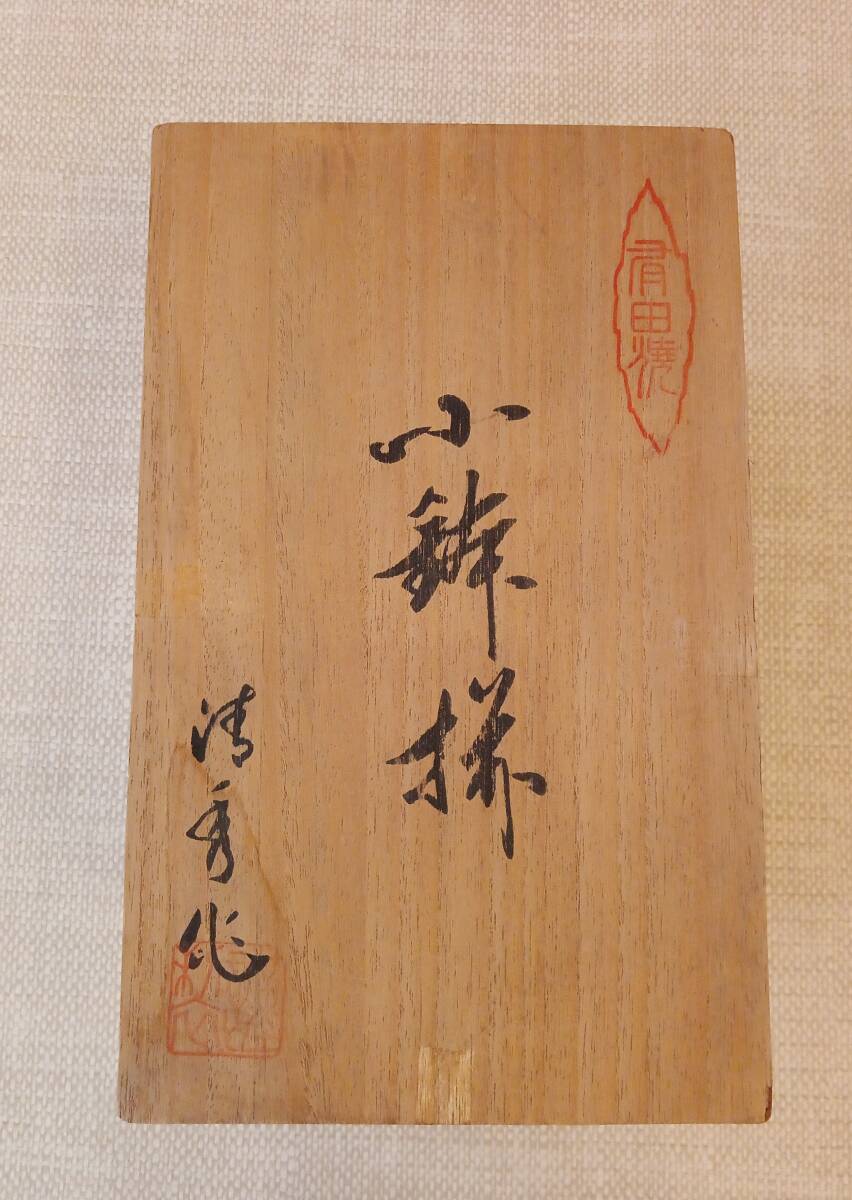 有田焼
小鉢揃
清秀作